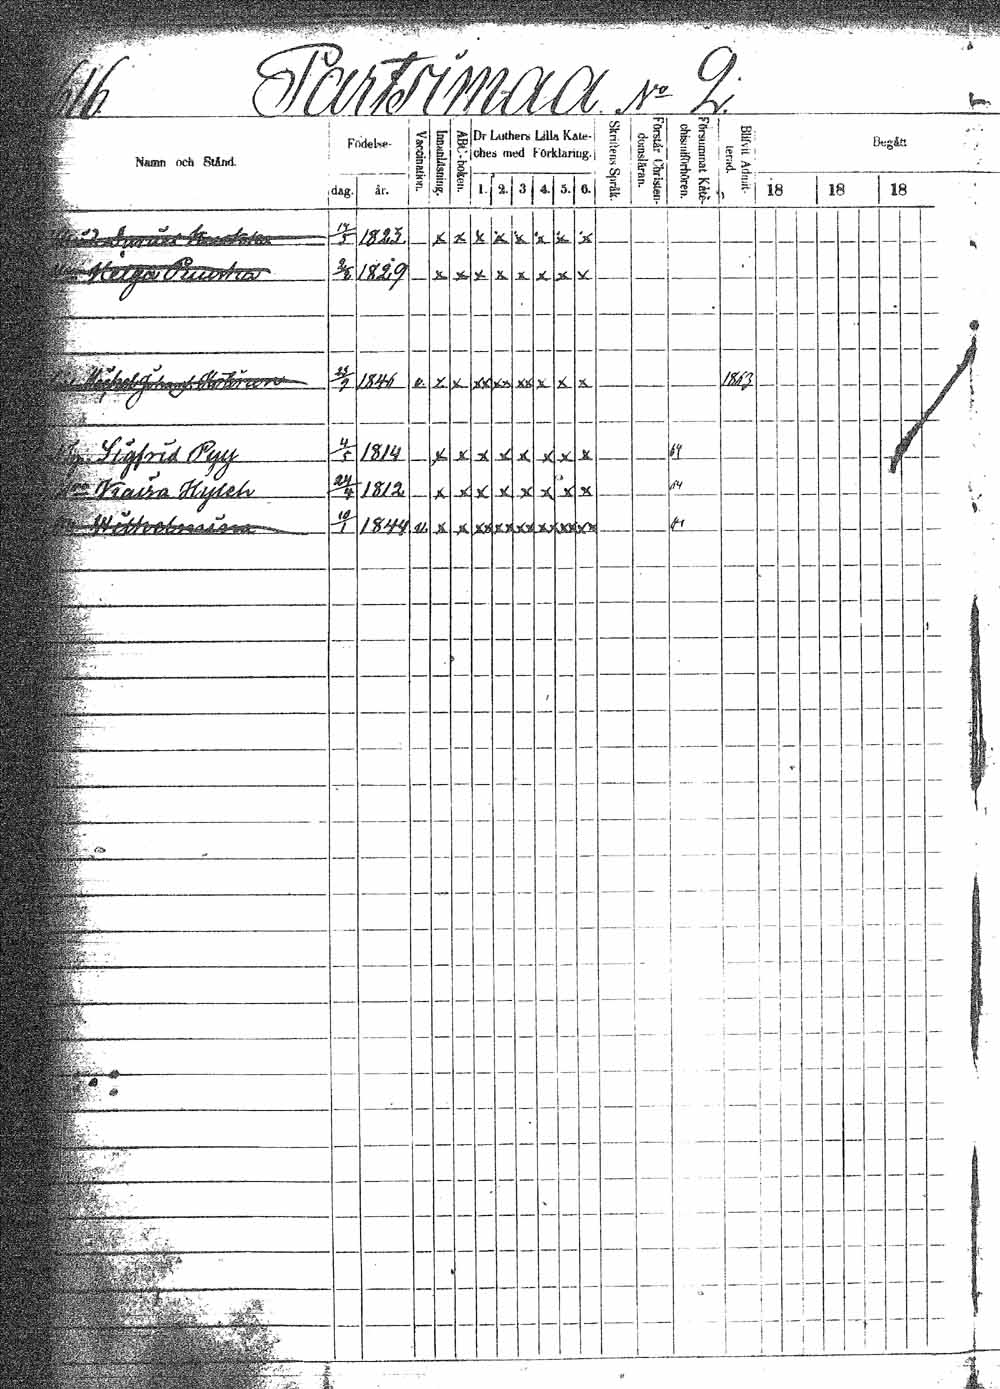 616. Partsimaa No 2.
Namn och Stånd.
Födelse-
dag. år.
Vaccination.
Innanläsning.
ABC-boken.
Dr Luthers Lilla Kate-
ches med Förklaring.
1. 2. 3 4. 5. 6.
Skriftens Språk.
Förstår Christen-
domsläran.
Försummat Kate-
chismiförhören.
Blifvit Admit-
terad.
Begått
18 18 18
1823 x x x x x x x x
Helga 2/8 1829 x x x x x x x x
Michel Johan 23/9 1846 v. x x xx xx xx x x x 1863
Sigfrid Pyy 4/5 1814 x x x x x x x x 64
24/4 1812 x x x x x x x x 64
Wilhelmina 10/1 1844 v. x x xx xx xx xx xx xx